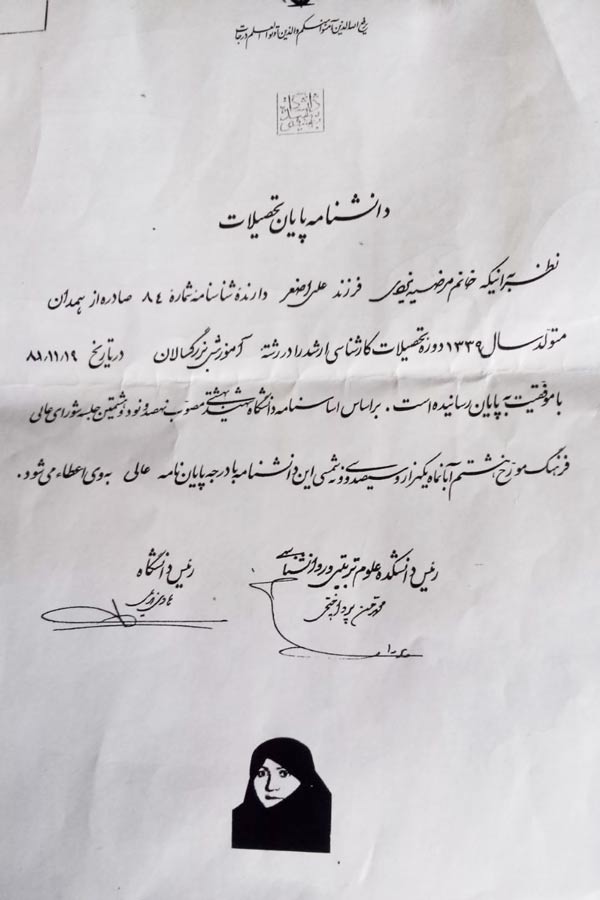 یرفع الله الذین آمنوا منکم والذین اوتوا العلم درجات
دانشگاه شهید بهشتی
دانشنامه پایان تحصیلات
نظر به اینکه خانم مرضیه فرزند علی اصغر دارندهٔ شناسنامهٔ شمارهٔ ۸۴ صادره از همدان
متولد سال ۱۳۳۹ دورهٔ تحصیلات کارشناسی ارشد را در رشتهٔ آموزش بزرگسالان در تاریخ ۸۱،۱۱،۱۹
با موفقیت به پایان رسانیده است . بر اساس اساسنامه دانشگاه شهید بهشتی مصوب نهصد و نود و هشتمین جلسه شورای عالی
فرهنگ مورخ هشتم آبانماه یکهزار و سیصد و سی و نه شمسی این دانشنامه با درجه پایان نامه عالی به وی اعطاء می شود .
رئیس دانشکده علوم تربیتی و روانشناسی
رئیس دانشگاه
محمدحسن پرداختچی
هادی ندیمی